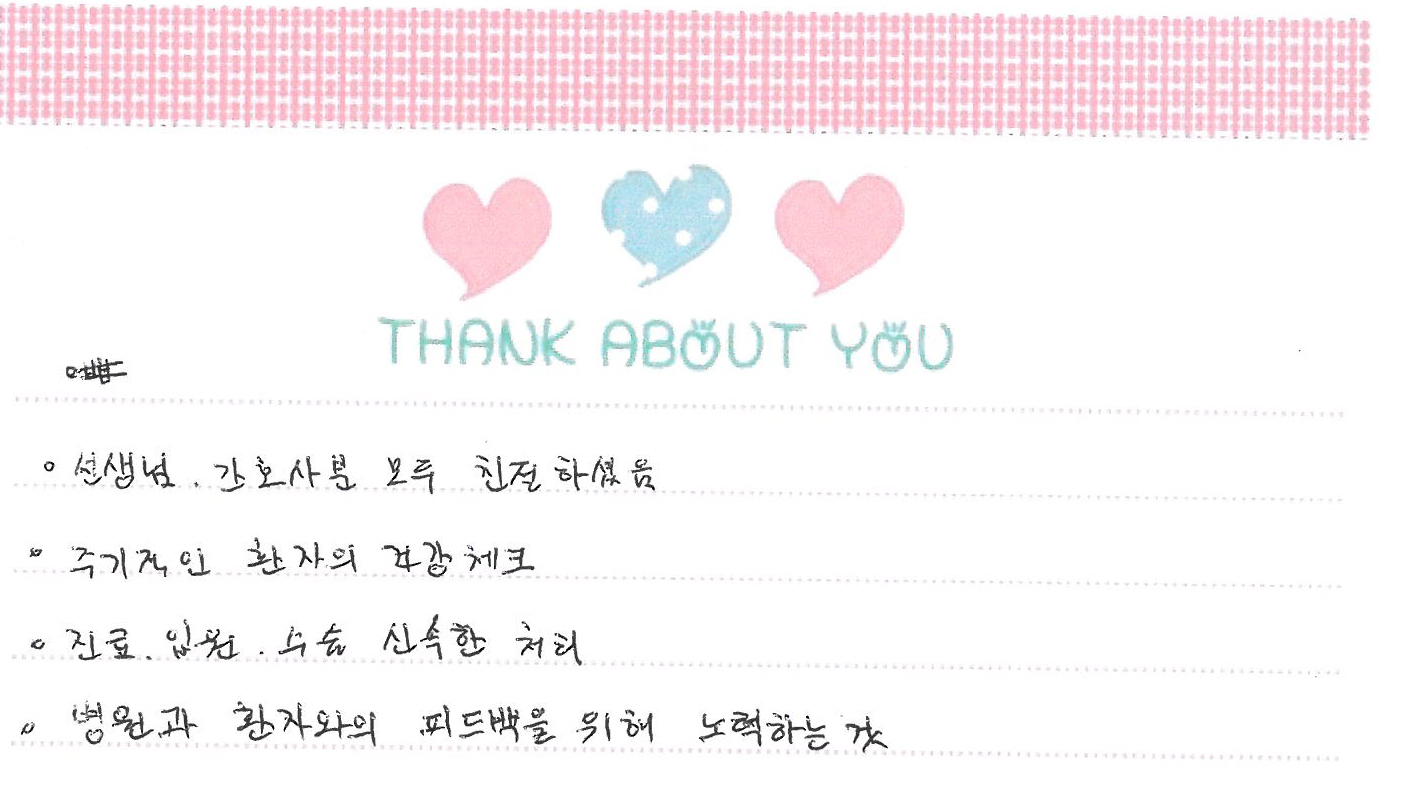 THANK ABOUT YOU
◦ 선생님. 간호사분 모두 친절하셨음
◦ 주기적인 환자의 건강체크
◦ 진료. 입원. 수술 신속한 처리
◦ 병원과 환자와의 피드백을 위해 노력하는 것